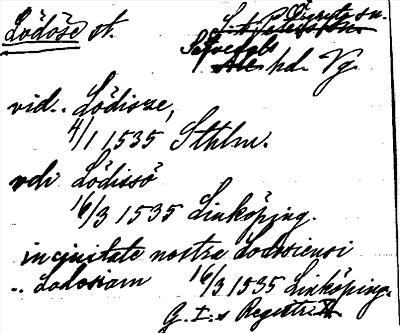 Lödöse st. S. t. Peders sn.
Flundre hd. Vg.
vid.. Lödisze,
4/1 1535 Sthlm.
vdi Lödissö
16/3 1535 Linköping.
in ciuitate nostra Lodosiensi
.. Lodosiam 16/3 1535 Linköping.
G. I:s Registr. X